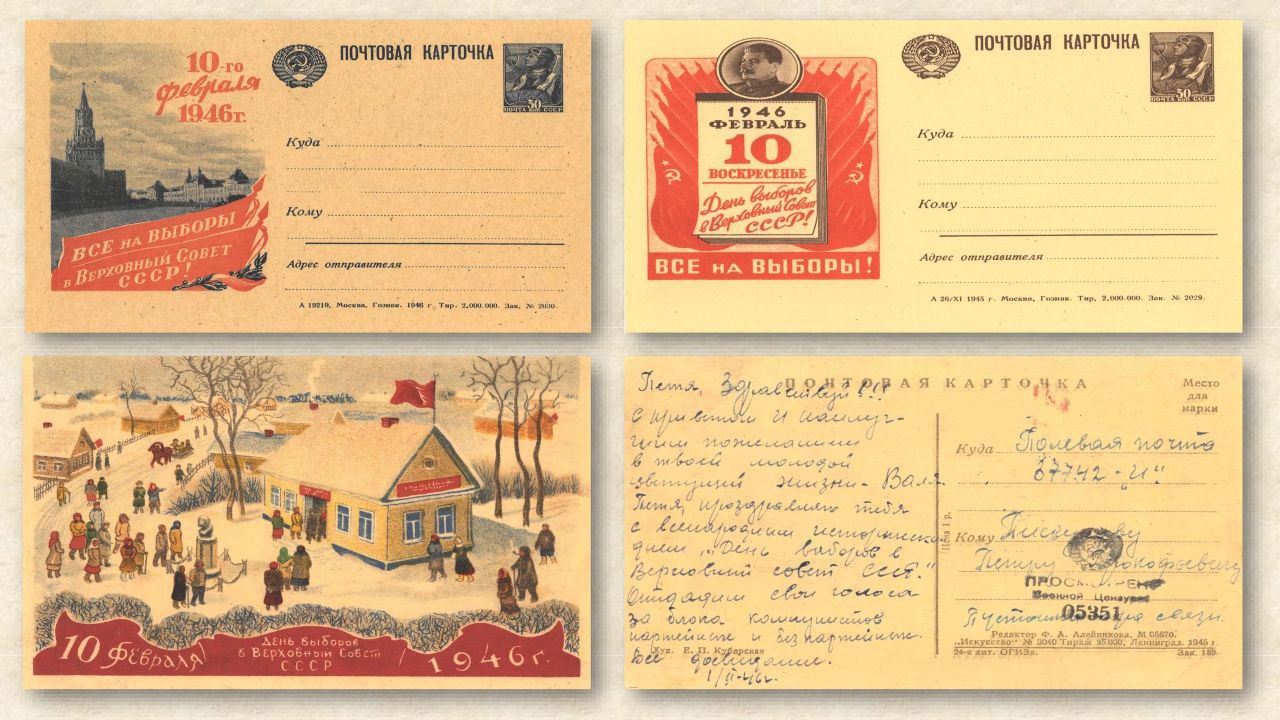 10-го
февраля
1946г.
ВСЕ НА ВЫБОРЫ
в ВЕРХОВНЫЙ СОВЕТ
СССР!
ПОЧТОВАЯ КАРТОЧКА
30
ПОЧТА СССР
Куда
Кому
Адрес отправителя
А 19219. Москва, Гознак. 1946 г. Тир. 2.000.000. Зак. № 2030.
1946
ФЕВРАЛЬ
10
ВОСКРЕСЕНЬЕ
День выборов
в Верховный Совет
СССР!
ВСЕ НА ВЫБОРЫ!
ПОЧТОВАЯ КАРТОЧКА
30
ПОЧТА СССР
Куда
Кому
Адрес отправителя
А 26/XI 1945 г. Москва, Гознак. Тир. 2.000.000. Зак. № 2029.
10 ФЕВРАЛЯ
ДЕНЬ ВЫБОРОВ
в ВЕРХОВНЫЙ СОВЕТ
СССР
1946г.
ПОЧТОВАЯ КАРТОЧКА
Место
для
марки
Петя, Здравствуй!!!
С приветом и наилуч-
шими пожеланиями
в твоей молодой
цветущей жизни - Валя.
Петя, проздравляю тебя
с всенародным историческим
днем „День выборов в
Верховный совет СССР."
Отдадим свои голоса
за блока коммунистов
партейных и безпартейных.
До свидания.
1/II-46г.
Худ. Е. П. Кубарская
Цена 1 р.
Куда Полевая почта
67742 „И".
Кому
Петру Прокофьевичу
ПРОСМОТРЕНО
Военной Цензурой
05351
Редактор Ф. А. Алейникова. М 05670.
„Искусство" № 3040 Тираж 95.000. Ленинград. 1945 г.
24-я лит. ОГИЗа. Зак. 189